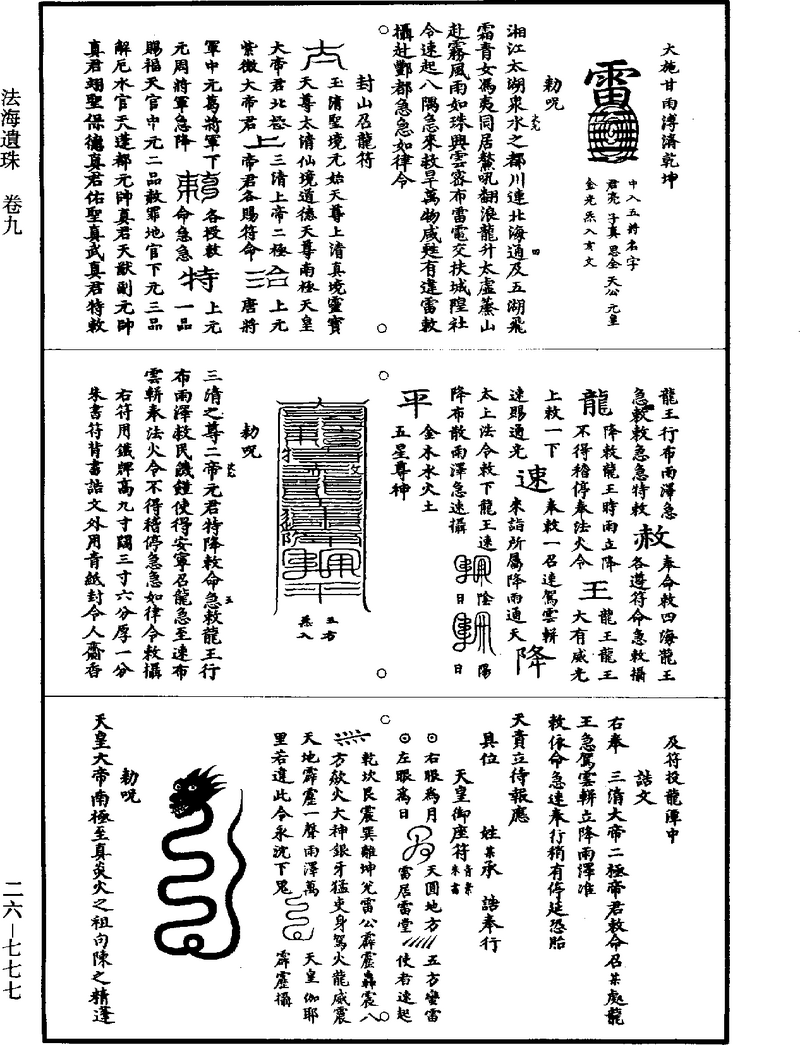 大施甘雨溥濟乾坤
雷
中入五將名字
君亮 子真 思全 天公 元皇
金光炁入亥文
勅呪
湘江太湖泉水之都川連北海通及五湖飛
霜青女馮夷同居鰲吼翻浪龍升太虛蓁山
赴霧風雨如珠興雲密布雷電交扶城隍社
令速起八隅急來救旱萬物咸甦有違雷敕
攝赴酆都急急如律令
封山召龍符
玉清聖境元始天尊上清真境靈寶
天尊太清仙境道德天尊南極天皇
大帝君北極 上 三清上帝二極 治 上元
紫微大帝君 帝君各賜符命 三 唐將
軍中元葛將軍下 各授敕 特 上元
元周將軍急降 敕 命急急 一品
賜福天官中元二品赦罪地官下元三品
解厄水官天蓬都元帥真君天猷副元帥
真君翊聖保德真君佑聖真武真君特敕
龍王行布雨澤急 赦 奉命敕四海龍王
急敕敕急急特敕 各遵符命急敕攝
龍 降敕龍王時雨立降 王 龍王龍王
不得稽停奉法火令 大有威光
上敕一下 速 奉敕一召速駕雲軿
速賜通光 來詣所屬降雨通天 降
太上法令敕下龍王速 陰 陽
降布散雨澤急速攝 日 日
平 金木水火土
五星尊神
五方
炁入
勅呪
三清之尊二帝元君特降敕命急敕龍王行
布雨澤救民饑饉使得安寧召龍急至速布
雲軿奉法火令不得稽停急急如律令敕攝
右符用鐵牌高九寸闊三寸六分厚一分
朱書符背書誥文外用青紙封令人齎香
及符投龍潭中
誥文
右奉 三清大帝二極帝君敕命召某處龍
王急駕雲軿立降雨澤准
敕依命急速奉行稍有停延恐貽
天責立待報應
具位 姓某承 誥奉行
天皇御座符 青紫朱書
右眼為月 天圓地方 五方蠻雷
左眼為日 雷居雷堂 使者速起
乾坎艮震巽離坤兌雷公霹靂轟震八
方欻火大神銀牙猛吏身駕火龍威震
天地霹靂一聲雨澤萬 天皇伽耶
里若違此令永沈下鬼 霹靂攝
勅呪
天皇大帝南極至真炎火之祖向陳之精蓬
法海遺珠 卷九
二六—七七七